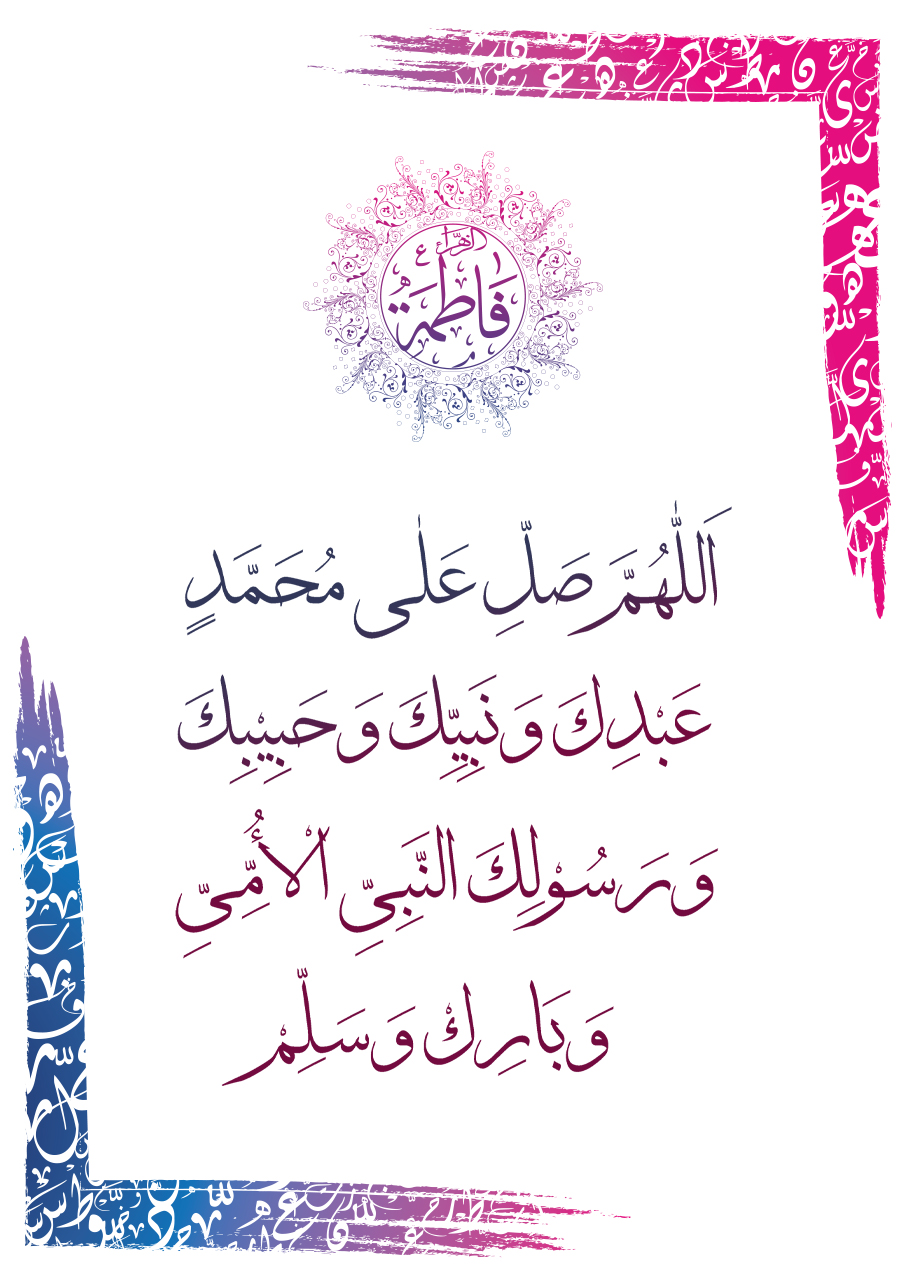 الزهراء
فاطمة
اَللّٰهُمَّ صَلِّ عَلٰى مُحَمَّدٍ
عَبْدِكَ وَ نَبِيِّكَ وَ حَبِيْبِكَ
وَ رَسُوْلِكَ النَّبِىِّ الْاُمِّىِّ
وَ بَارِكْ وَ سَلِّمْ